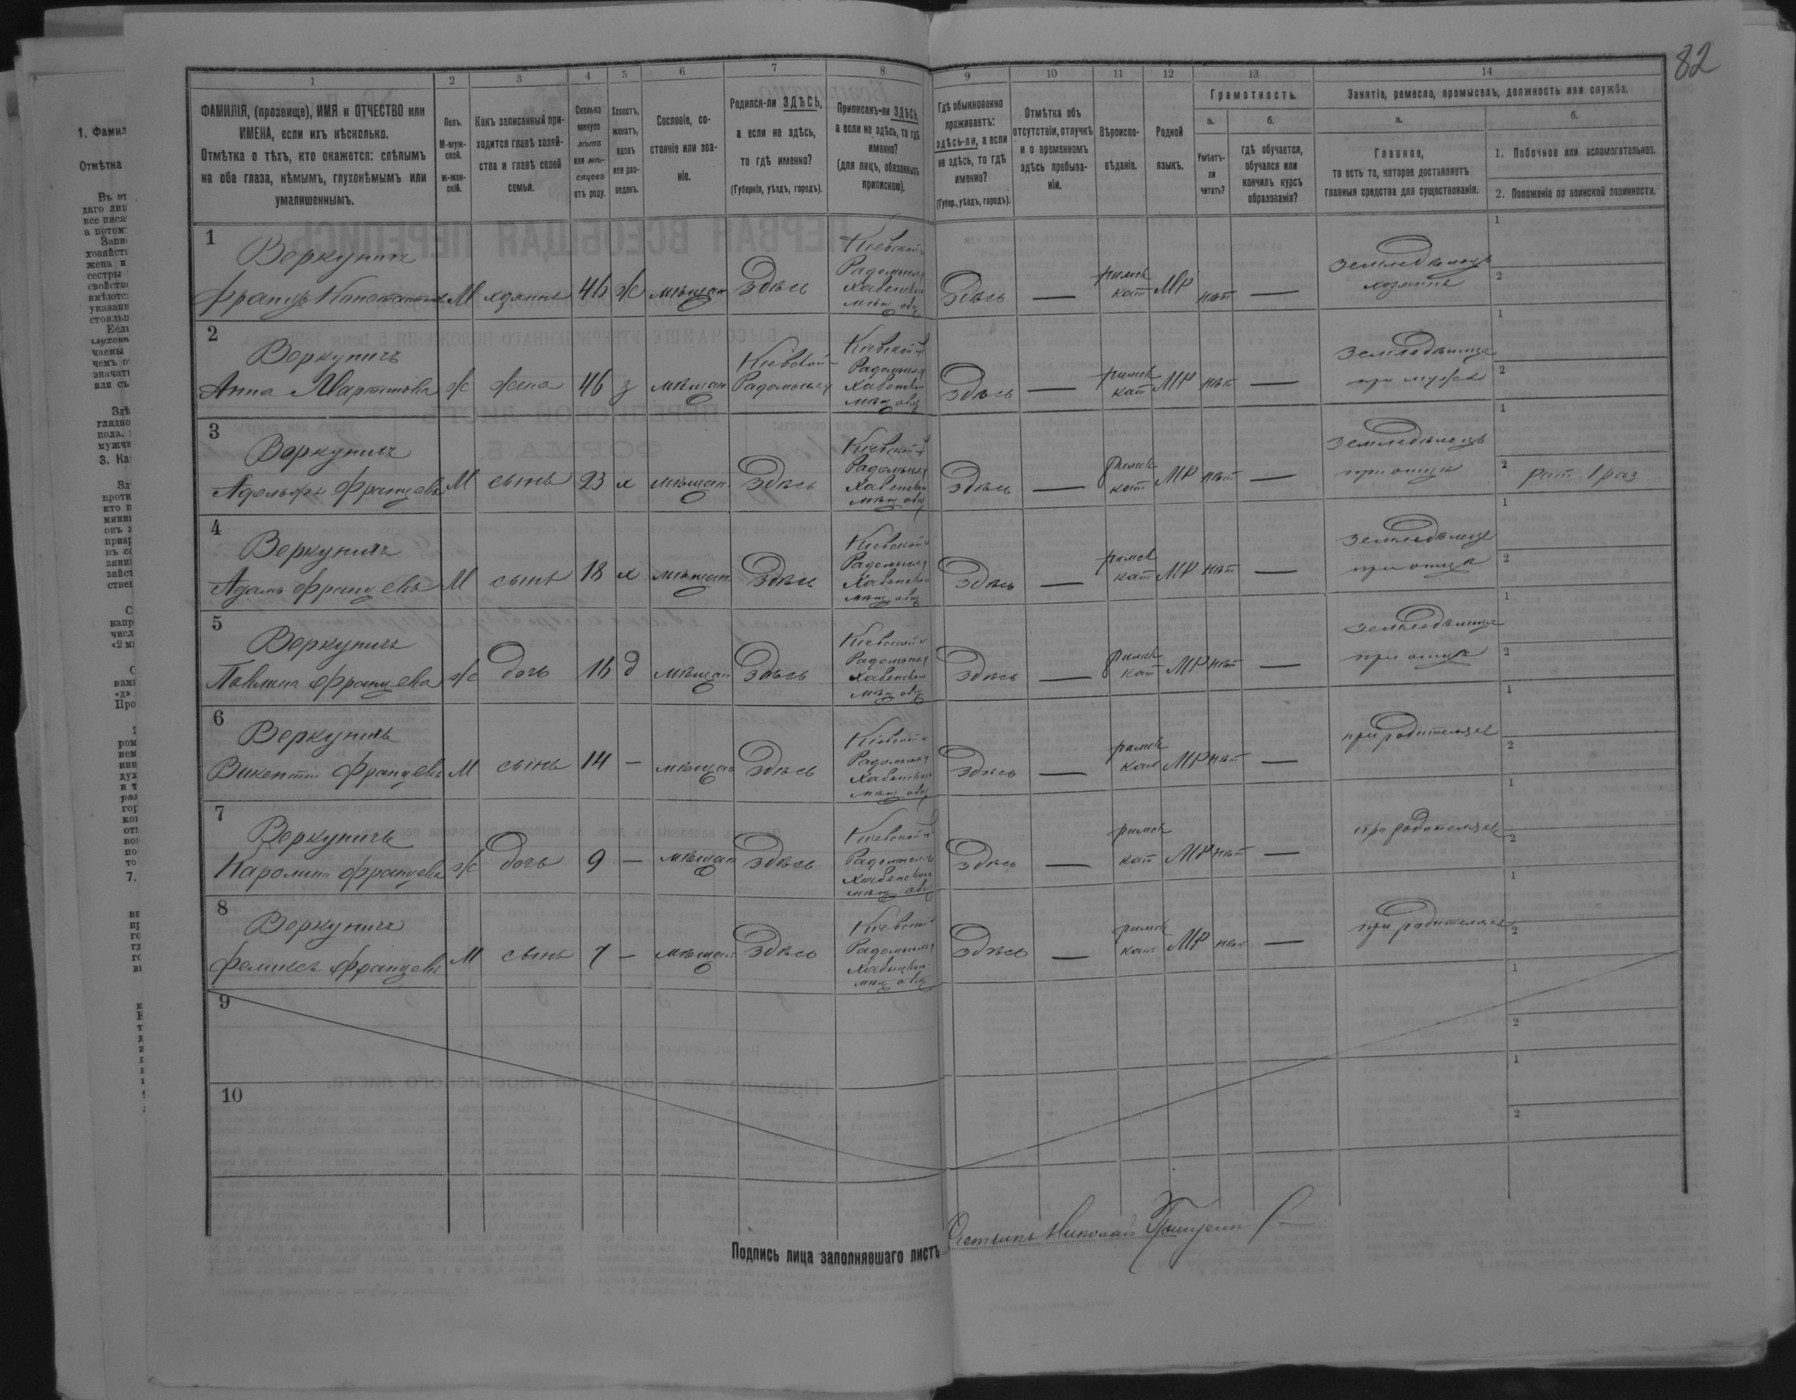 82
1 2 3 4 5 6 7 8 9 10 11 12 13 14
ФАМИЛІЯ, (прозвище), ИМЯ и ОТЧЕСТВО или
ИМЕНА, если ихъ нѣсколько.
Отмѣтка о тѣхъ, кто окажется: слѣпымъ
на оба глаза, нѣмымъ, глухонѣмымъ или
умалишеннымъ.
Полъ.
М-муж-
ской.
ж-жен-
скій.
Какъ записанный при-
ходится главѣ хозяй-
ства и главѣ своей
семьи.
Сколько
минуло
лѣтъ
или мѣ-
сяцевъ
отъ роду.
Холостъ,
женатъ,
вдовъ
или раз-
веденъ.
Сословіе, со-
стояніе или зва-
ніе.
Родился-ли ЗДѢСЬ,
а если не здѣсь,
то гдѣ именно?
(Губернія, уѣздъ, городъ).
Приписанъ-ли ЗДѢСЬ,
а если не здѣсь, то гдѣ
именно?
(для лицъ, обязанныхъ
припискою).
Гдѣ обыкновенно
проживаетъ:
здѣсь-ли, а если
не здѣсь, то гдѣ
именно?
(Губер., уѣздъ, городъ).
Отмѣтка объ
отсутствіи, отлучкѣ
и о временномъ
здѣсь пребыва-
ніи.
Вѣроиспо-
вѣданіе.
Родной
языкъ.
Грамотность.
а.
Умѣетъ-
ли
читать?
б.
гдѣ обучается,
обучался или
кончилъ курсъ
образованія?
Занятіе, ремесло, промыселъ, должность или служба.
а.
Главное,
то есть то, которое доставляетъ
главныя средства для существованія.
б.
1. Побочное или вспомогательное.
2. Положеніе по воинской повинности.
1
Веркупичъ
Францъ М хозяинъ 46 ж мѣщан Здѣсь
Кіевской
Радомысл
Хабенской
мѣщ общ
Здѣсь — римск кат МР нѣт —
земледѣлецъ
хозяинъ
2
Веркупичъ
Анна Мартинова ж жена 46 з мѣщан
Кіевской
Радомысл
Кіевской
Радомысл
Хабенской
мѣщ общ
Здѣсь — римск кат МР нѣт —
при мужѣ
3
Веркупичъ
Адольфъ Францевъ М сынъ 23 х мѣщан Здѣсь
Кіевской
Радомысл
Хабенской
мѣщ общ
Здѣсь — римск кат МР нѣт —
земледѣлецъ
при отцѣ
рат. 1 раз
4
Веркупичъ
Адамъ Францевъ М сынъ 18 х мѣщан Здѣсь
Кіевской
Радомысл
Хабенской
мѣщ общ
Здѣсь — римск кат МР нѣт —
земледѣлецъ
при отцѣ
5
Веркупичъ
Францева ж дочь 16 д мѣщан Здѣсь
Кіевской
Радомысл
Хабенской
мѣщ общ
Здѣсь — римск кат МР нѣт —
при отцѣ
6
Веркупичъ
Викентій Францевъ М сынъ 14 — мѣщан Здѣсь
Кіевской
Радомысл
Хабенской
мѣщ общ
Здѣсь — римск кат МР нѣт —
при родителяхъ
7
Веркупичъ
Каролина Францева ж дочь 9 — мѣщан Здѣсь
Кіевской
Радомысл
Хабенской
мѣщ общ
Здѣсь — римск кат МР нѣт —
при родителяхъ
8
Веркупичъ
Феликсъ Францевъ М сынъ 7 — мѣщан Здѣсь
Кіевской
Радомысл
Хабенской
мѣщ общ
Здѣсь — римск кат МР нѣт —
при родителяхъ
9
10
Подпись лица заполнявшаго листъ
Счетчикъ Николай